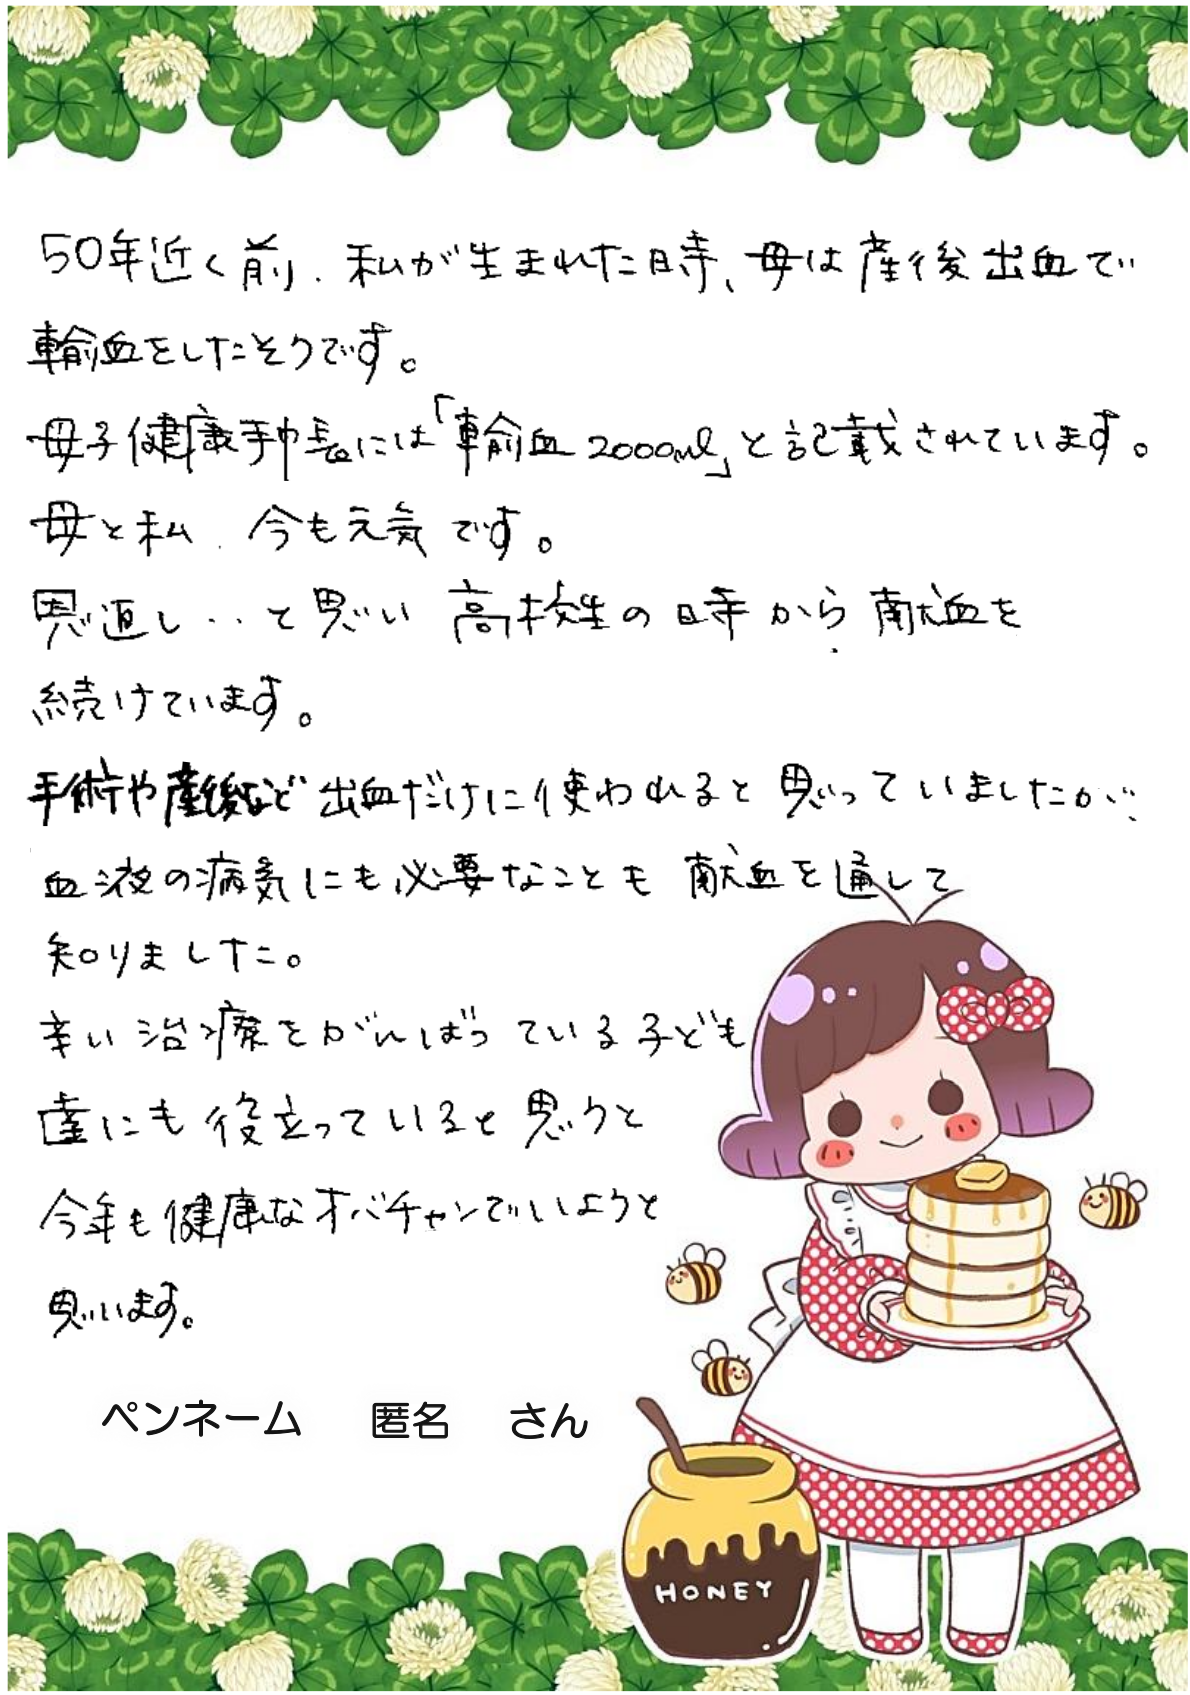 50年近く前、私が生まれた時、母は産後出血で
輸血をしたそうです。
母子健康手帳には「輸血2000ml」と記載されています。
母と私、今も元気です。
恩返し‥と思い 高校生の時から献血を
続けています。
手術や産後など出血だけに使われると思っていましたが、
血液の病気にも必要なことも献血を通して
知りました。
辛い治療をがんばっている子ども
達にも役立っていると思うと
今年も健康なオバチャンでいようと
思います。
ペンネーム 匿名 さん
HONEY